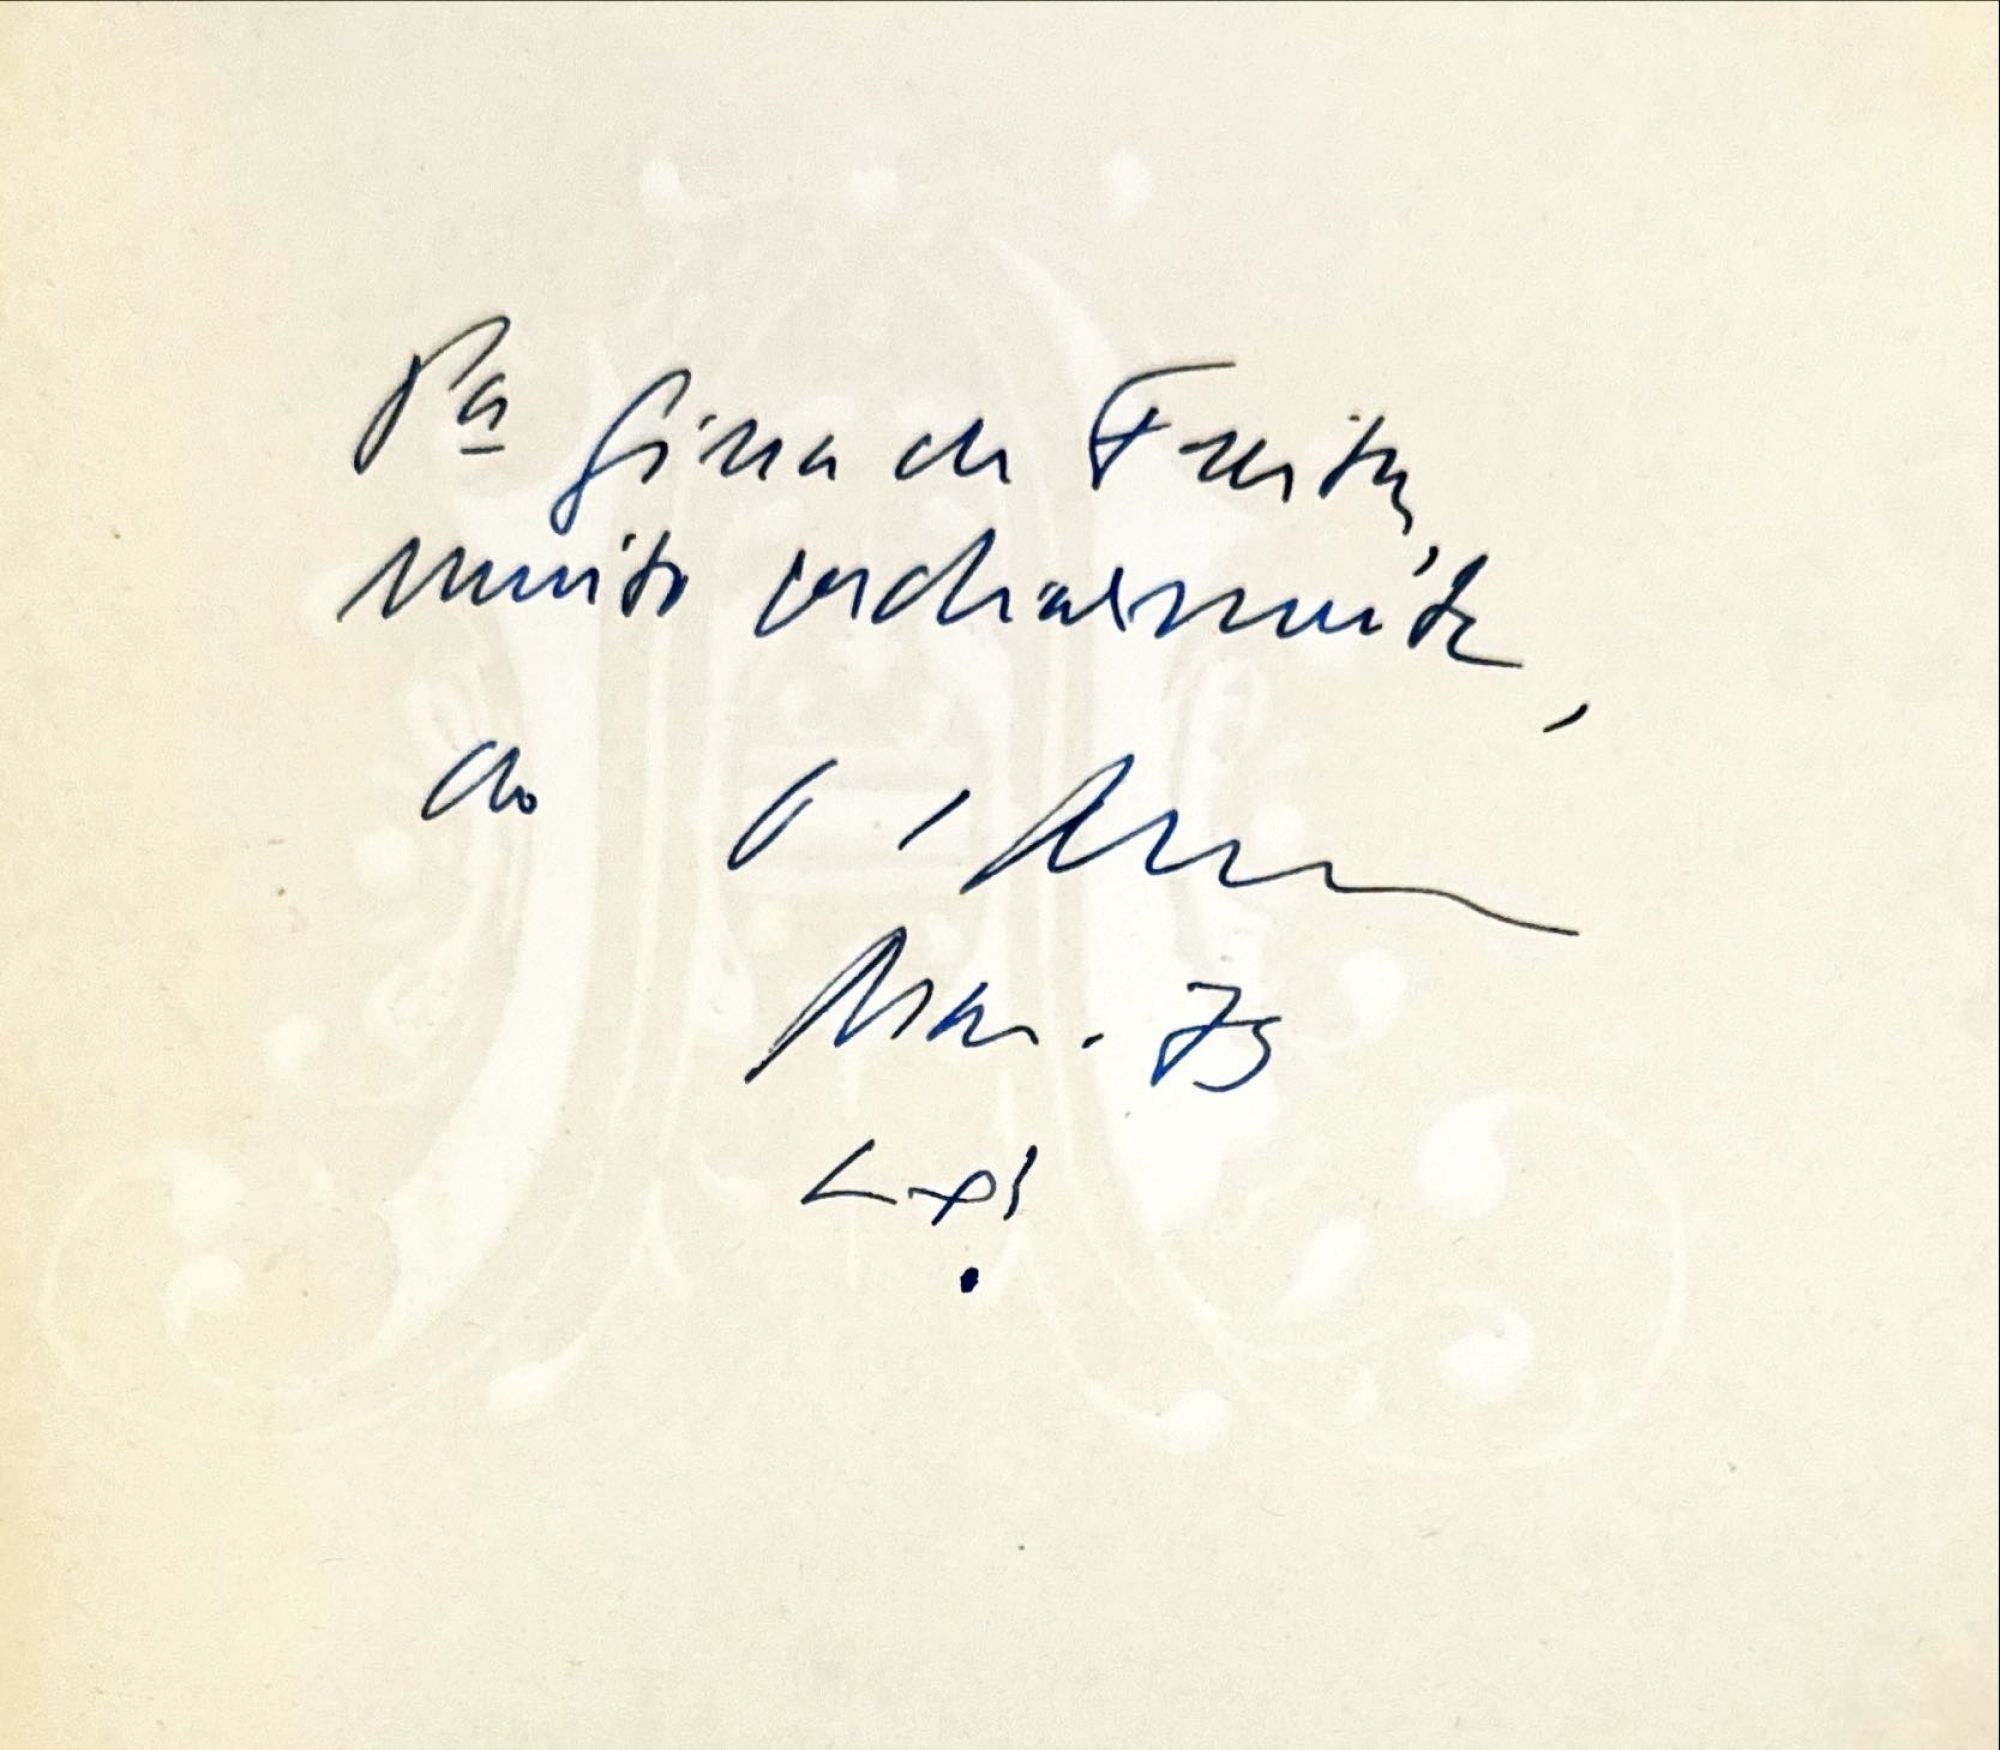 Pª Gina de Freitas,
muito cordialmente,
do
Mar. 79
Lx!